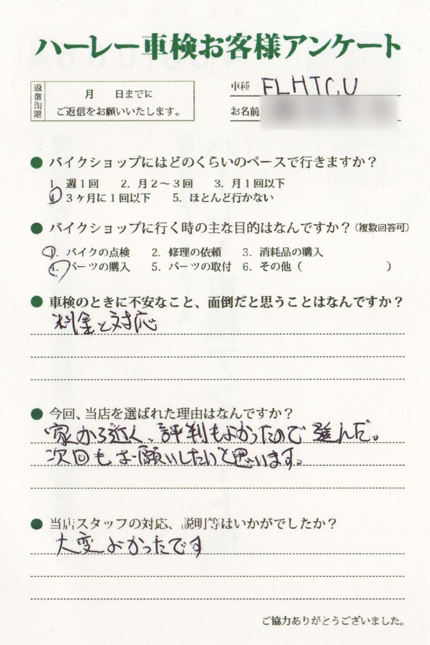 ハーレー車検お客様アンケート
返信期限
月 日までに
ご返信をお願いいたします。
車種 FLHTCU
お名前
● バイクショップにはどのくらいのペースで行きますか？
1. 週1回 2. 月2～3回 3. 月1回以下
4. 3ヶ月に1回以下 5. ほとんど行かない
● バイクショップに行く時の主な目的はなんですか？(複数回答可)
1. バイクの点検 2. 修理の依頼 3. 消耗品の購入
4. パーツの購入 5. パーツの取付 6. その他 ( )
● 車検のときに不安なこと、面倒だと思うことはなんですか？
料金と対応
● 今回、当店を選ばれた理由はなんですか？
家から近く、評判もよかったので選んだ。
次回もお願いしたいと思います。
● 当店スタッフの対応、説明等はいかがでしたか？
大変よかったです
ご協力ありがとうございました。